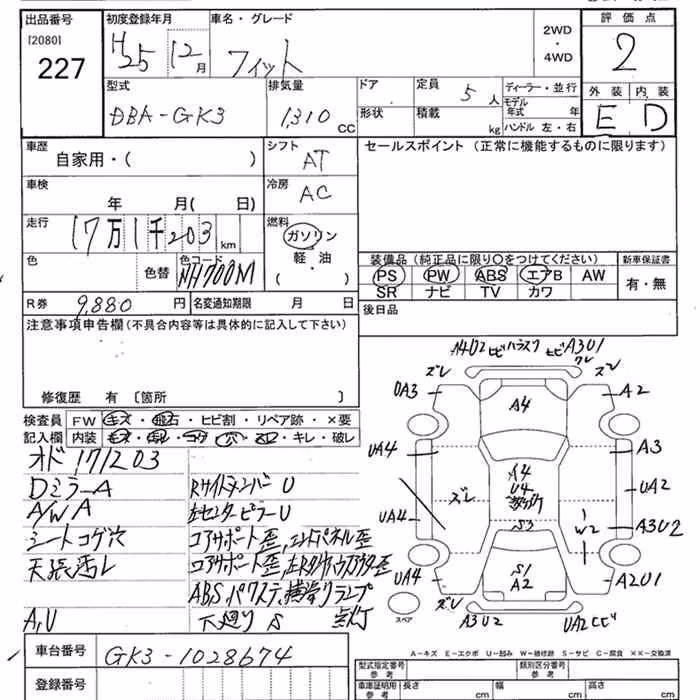 出品番号
[2080]
227
初度登録年月
H25 12月
車名・グレード
フィット
2WD
・
4WD
評価点
2
外装 内装
E D
型式
DBA-GK3
排気量
1,310 CC
ドア
形状
定員 5 人
積載 kg
ディーラー・並行
モデル年式 年
ハンドル 左・右
車歴
自家用・( )
シフト
AT
セールスポイント (正常に機能するものに限ります)
車検
年 月( 日)
冷房
AC
走行
17万1千203 km
燃料
ガソリン
・
軽油
・
( )
色
色替
色コード
NH700M
装備品 (純正品に限り○をつけてください)
PS PW ABS エアB AW
SR ナビ TV カワ
新車保証書
有・無
R券 9,880 円
名変通知期限 月 日
後日品
注意事項申告欄(不具合内容等は具体的に記入して下さい)
修復歴 有 〔箇所 〕
検査員記入欄
FW キズ・飛石・ヒビ割・リペア跡・×要
内装 キズ・・コゲ・穴・・キレ・破レ
オド171203
Dミラー A
A/W A
シートコゲ穴
天張汚レ
A,U
RサイドメンバーU
左センターピラーU
コアサポート歪,エンドパネル歪
コアサポート歪,
ABS,パワステ,横滑りランプ
点灯
下廻りS
A4U2 ヒビ ハラスク ヒビ A3U1
ズレ
ズレ
UA3
A2
A4
UA4
A3
A4
U4
ズレ
UA2
UA4
S3
W2
A3U2
UA4
S1
A2
A2U1
ズレ
A3U2
UA2ヒビ
スペア
A-キズ E-エクボ U-凹み W-補修跡 S-サビ C-腐食 ××-交換済
車台番号
GK3-1028674
登録番号
型式指定番号
参考
類別区分番号
参考
車庫証明用
参考
長さ cm
幅 cm
高さ cm